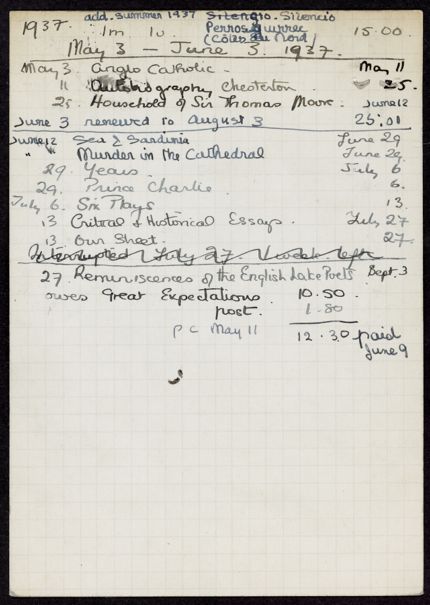 add. summer 1937 Silencio. Silencio
1937. 1m 1v Perros Guirrec 15.00
(Côtes du Nord)
May 3 — June 3. 1937.
May 3 Anglo Catholic. May 11
11 Autobiography Chesterton. 25.
25. Household of Sir Thomas Moore. June 12
June 3 renewed to August 3 25.01
June 12 Sea & Sardinia June 29
" Murder in the Cathedral June 29.
29. Years. July 6
29. Prince Charlie 6.
July 6. Six Plays 13.
13 Critical & Historical Essays. July 27
13. Our Street. 27.
Interrupted July 27. 1 week left
27. Reminiscences of the English Lake Poets Sept. 3
owes Great Expectations. 10.50.
post. 1.80
PC May 11 12.30 paid
June 9